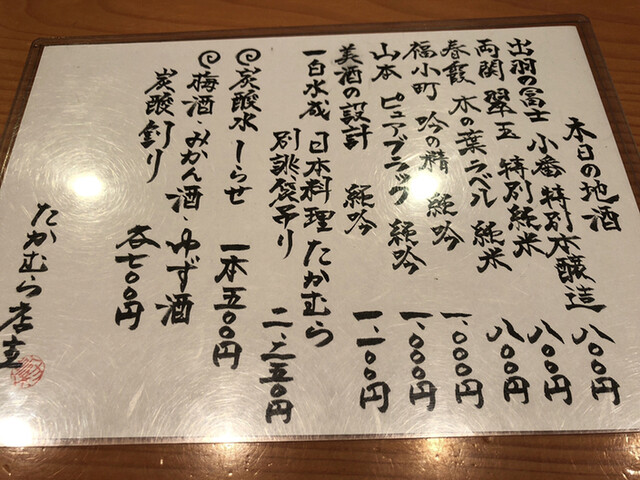 本日の地酒
出羽の富士 小番 特別本醸造 八〇〇円
両関 翠玉 特別純米 八〇〇円
春霞 木の葉ラベル 純米 八〇〇円
福小町 吟の精 純吟 一、〇〇〇円
山本 ピュアブラック 純吟 一、〇〇〇円
美酒の設計 純吟 一、一〇〇円
一白水成 日本料理たかむら
別誂袋吊り 二、二五〇円
炭酸水 しらせ 一本五〇〇円
梅酒・みかん酒・ゆず酒
炭酸割り 各七〇〇円
たかむら 店主